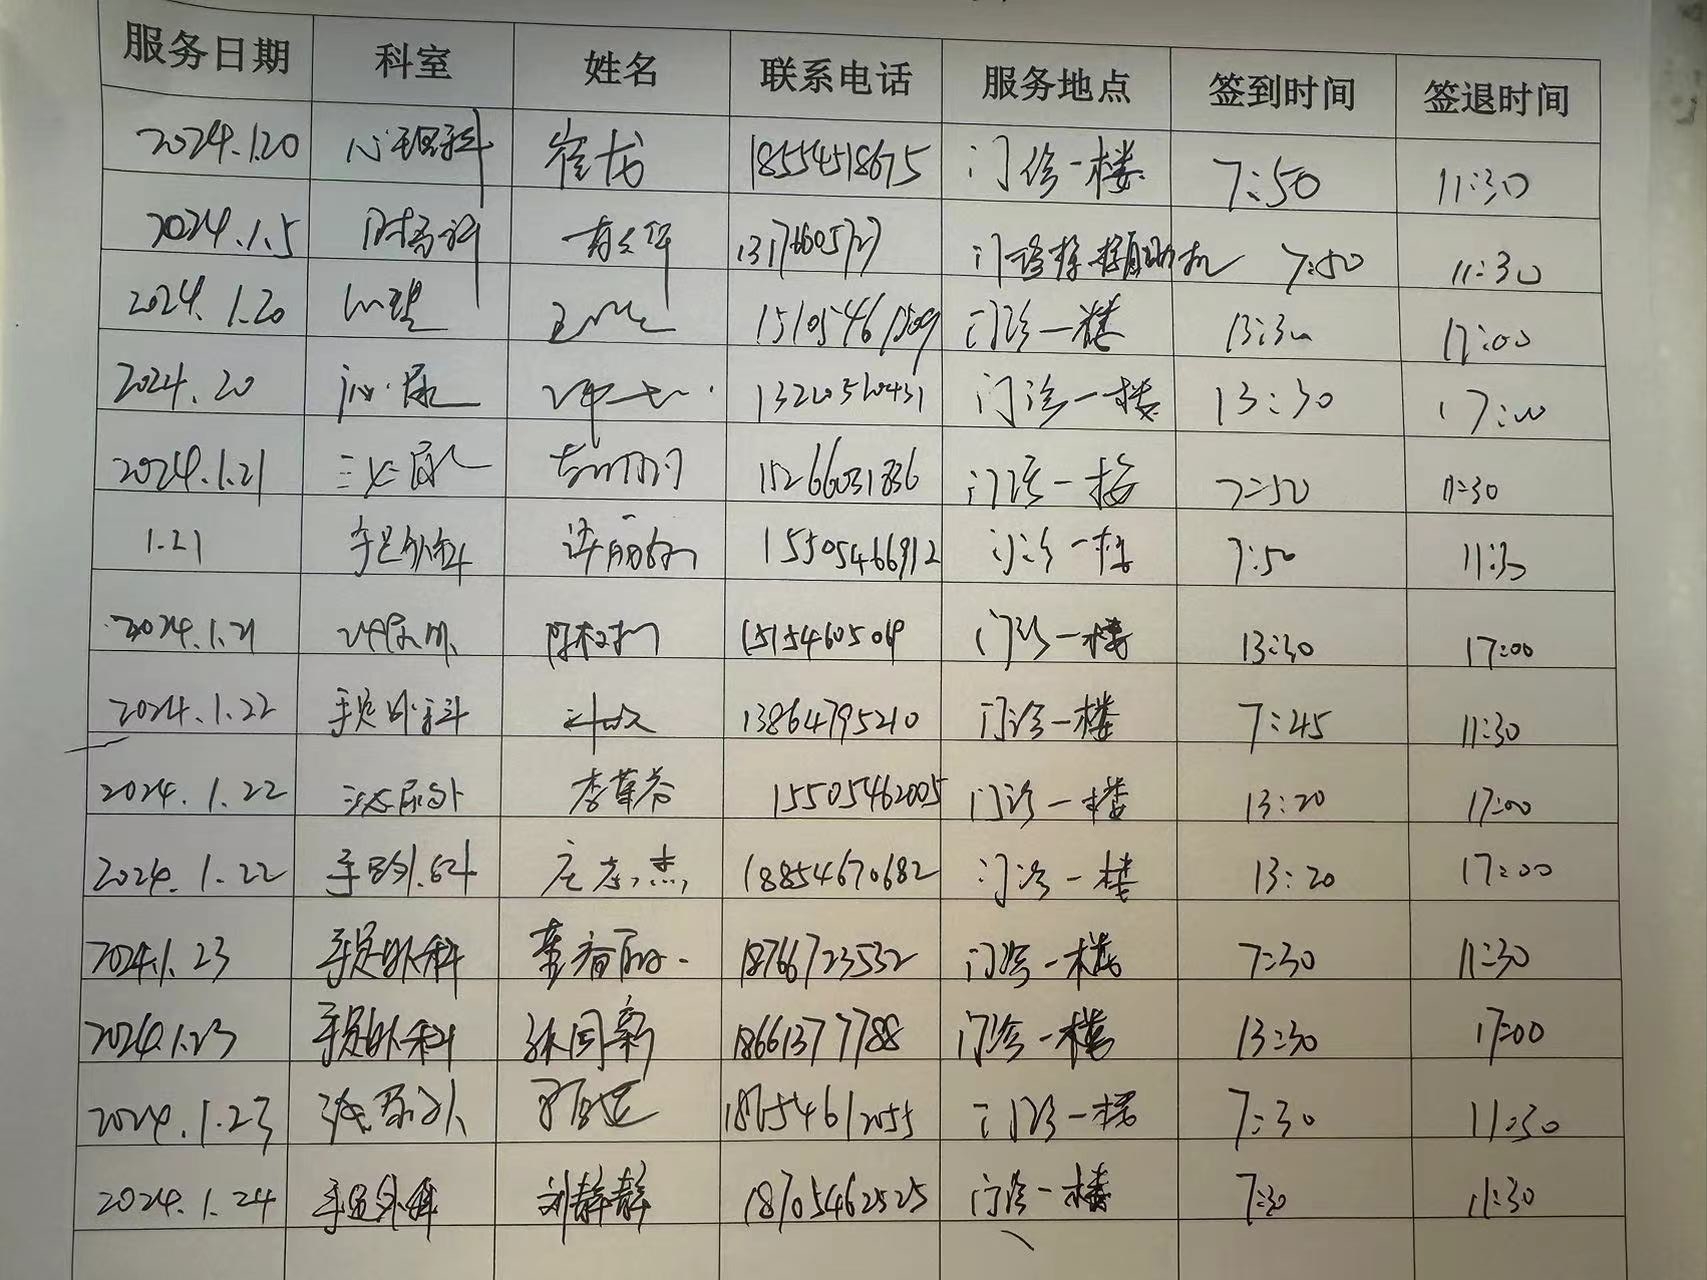 服务日期 科室 姓名 联系电话 服务地点 签到时间 签退时间
2024.1.20 心理科 崔龙 18554518675 门诊一楼 7:50 11:30
2024.1.5 门诊 7:50 11:30
2024.1.20 心理 门诊一楼 13:30 17:00
2024.20 13210510431 门诊一楼 13:30 17:00
2024.1.21 泌尿 15266031836 门诊一楼 7:50 11:30
1.21 手足外科 15505466912 门诊一楼 7:50 11:30
2024.1.21 门诊一楼 13:30 17:00
2024.1.22 手足外科 13864795210 门诊一楼 7:45 11:30
2024.1.22 泌尿外 15505462005 门诊一楼 13:20 17:00
2024.1.22 手足外科 18854670682 门诊一楼 13:20 17:00
2024.1.23 手足外科 董春丽 18766723532 门诊一楼 7:30 11:30
2024.1.23 手足外科 张同新 18661377788 门诊一楼 13:30 17:00
2024.1.23 泌尿外 门诊一楼 7:30 11:30
2024.1.24 手足外科 刘静静 18705462525 门诊一楼 7:30 11:30